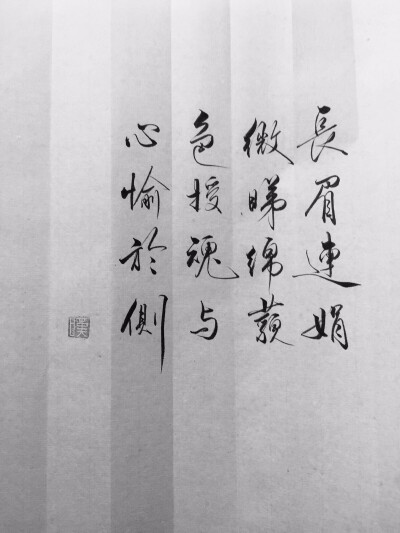 長眉連娟
微睇綿藐
色授魂与
心愉於側